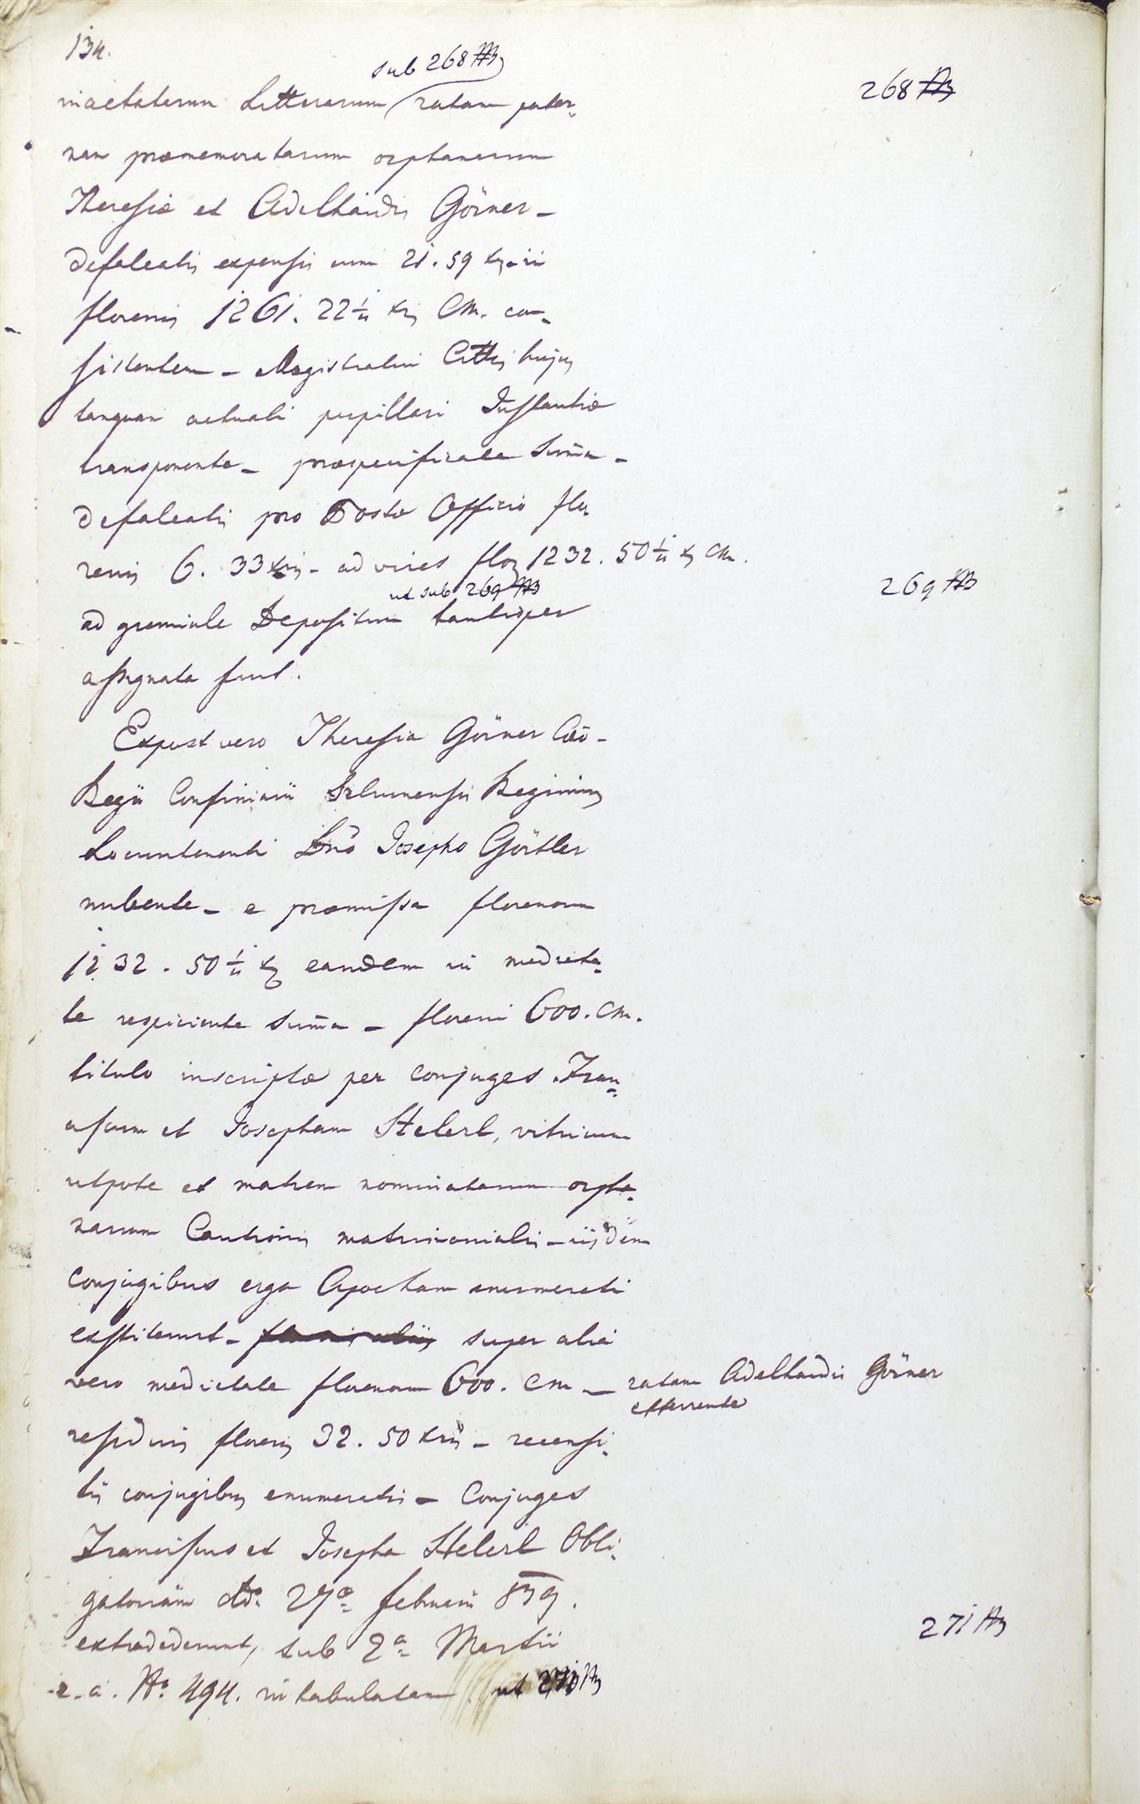 134.
sub 268
mactaturum Litterarum ratam pater-
268
nam praememoratarum orphanarum
Theresiae et Adelhaidis Görner –
defalcatis expensis cum 21. 59 xris in
florenis 1261. 22 xris CM. con-
sistentem – Magistratui Cittis hujus
tanquam actuali pupillari Instantiae
transponente – praespecificatae Summa –
defalcatis pro Postae Officio flo-
renis 6. 33 xris – ad vires flor 1232. 50 x CM.
ut sub 269
269
ad gremiale Depositum tantisper
assignata sunt.
Expost vero Theresia Görner Caeo-
Regii Confiniarii Szluinensis Regiminis
Locumtenenti Dno Josepho Görtler
nubente – e praemissa florenorum
1232. 50 x eandem in medieta-
te respiciente Summa – floreni 600. CM.
titulo inscriptae per conjuges Fran-
ciscum et Josepham Stelerl, vitricum
utpote et matrem nominatarum orpha-
narum Cautionis matrimonialis – iisdem
conjugibus erga Apocham enumerati
exstiterunt – super alia
vero medietate florenorum 600. CM –
ratam Adelhaidis Görner
efferente
residuis florenis 32. 50 xris – recensi-
tis conjugibus enumeratis – Conjuges
Franciscus et Josepha Stelerl Obli-
gatoriam dto. 27a februarii 839.
extradederunt, sub 2a Martii
271
e. a. No. 494. intabulatam ut